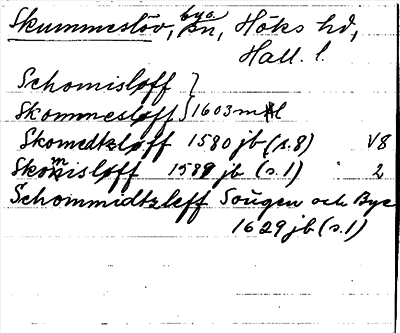 Skummeslöv, bya, sn, Höks hd,
Hall. l.
Schomisloff }
Skommesloff } 1603 m tl
Skomedtzloff 1580 jb (s.8) V8
Skomisloff 1589 jb (s.1) " 2
Schommidtzleff Soůgen och Bye
1629 jb (s.1)